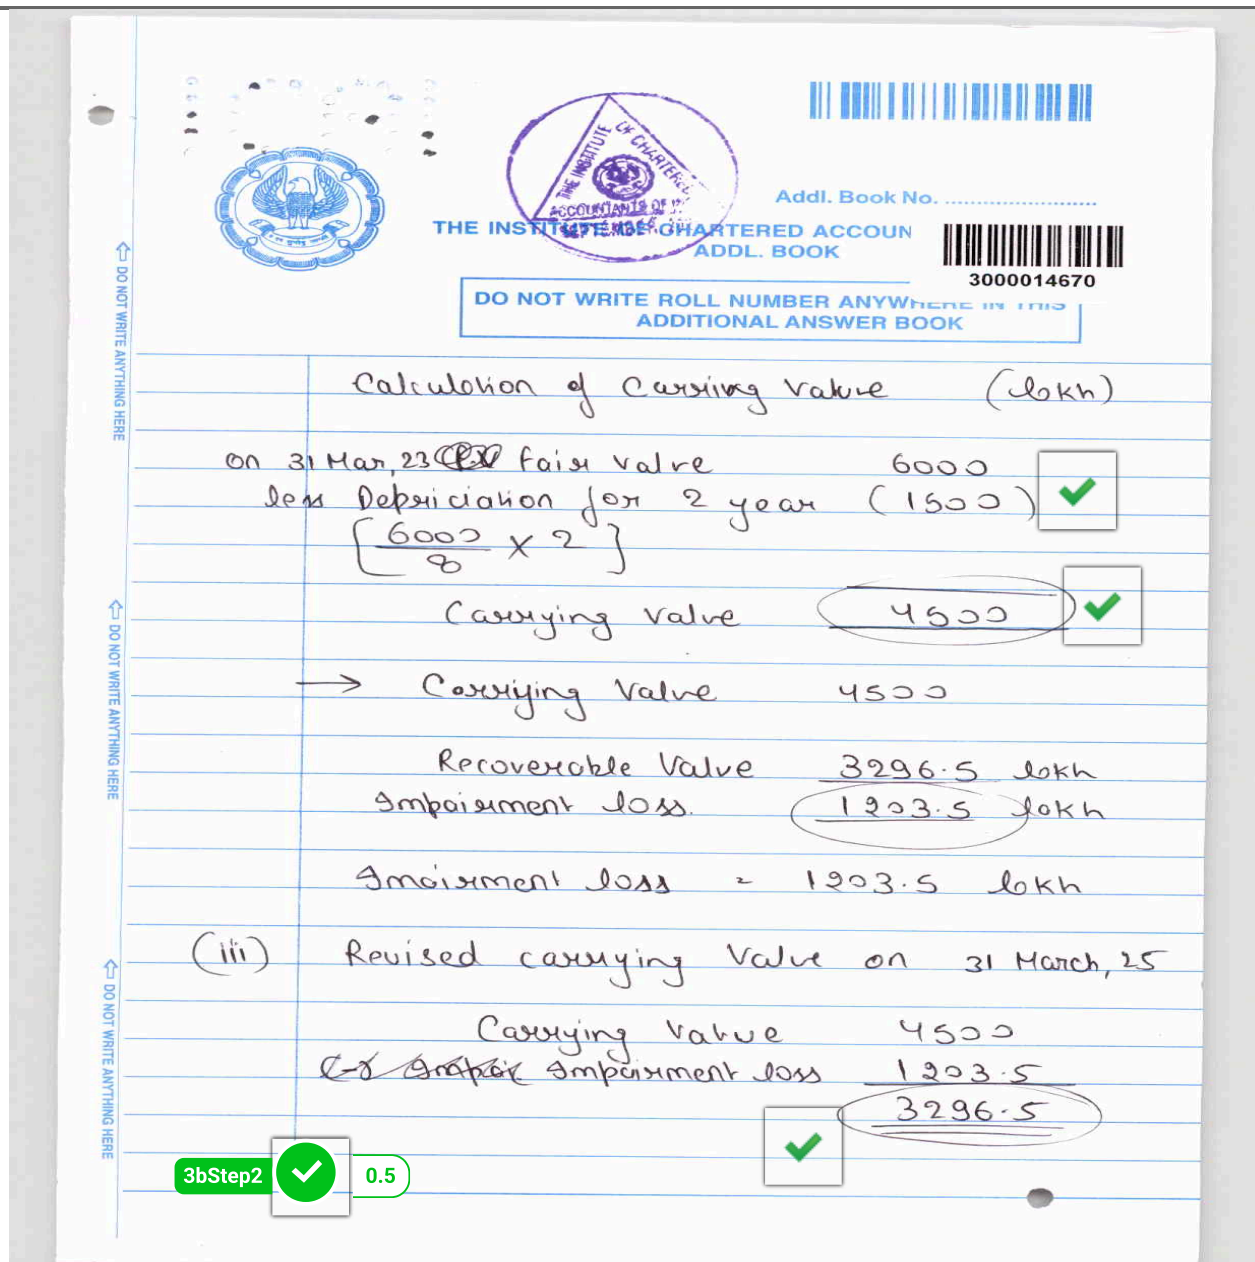 THE INSTITUTE OF CHARTERED
ACCOUNTANTS OF
SEPTEMBER
Addl. Book No. ........................
THE INSTITUTE OF CHARTERED ACCOUN
ADDL. BOOK
3000014670
DO NOT WRITE ROLL NUMBER ANYWHERE IN THIS
ADDITIONAL ANSWER BOOK
⇧ DO NOT WRITE ANYTHING HERE
⇧ DO NOT WRITE ANYTHING HERE
⇧ DO NOT WRITE ANYTHING HERE
Calculation of Carriivg Value (lakh)
on 31 Mar, 23 fair value 6000
less Depriciation for 2 year (1500)
[6000/8 × 2]
Carrying Value 4500
→ Carriying Value 4500
Recoverable Value 3296.5 lakh
Impairment loss. 1203.5 lakh
Imairment loss = 1203.5 lakh
(iii) Revised carrying Value on 31 March, 25
Carrying Value 4500
(-) Impairment loss 1203.5
3296.5
3bStep2 0.5